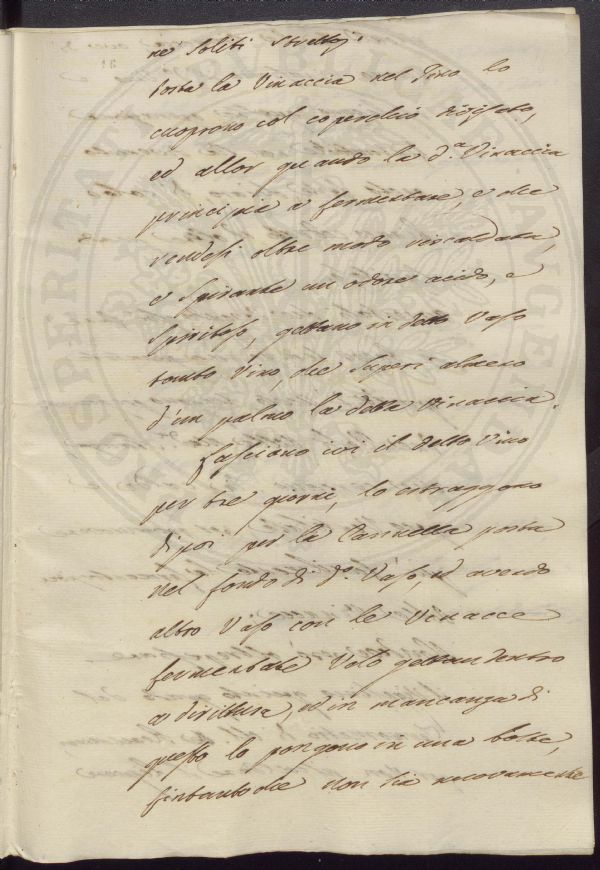 ne soliti strettoj.
Posta la Vinaccia nel Tino lo
cuoprono col coperchio
ed allor quando la d.ª Vinaccia
principia a fermentare, e che
rendesi oltre modo riscaldata,
e spirante un odore acido, e
spiritoso, gettano in detto Vaso
tanto Vino, che superi almeno
d'un palmo la detta Vinaccia.
Lasciano ivi il detto Vino
per tre giorni, lo estraggono
di poi per la Cannella posta
nel fondo di d.º Vaso, ed avendo
altro Vaso con le Vinacce
fermentate Voto gettan dentro
a dirittura, ed in mancanza di
questo lo pongono in una botte,
fintanto che non sia nuovamente
PROSPERITATI PUBLICAE AUGENDAE